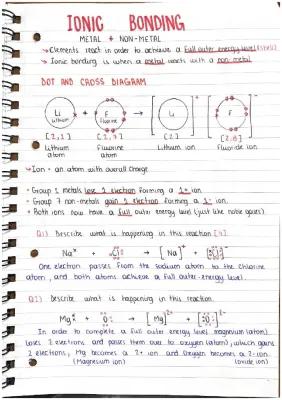 IONIC BONDING
METAL + NON-METAL
→ Elements react in order to achieve a full outer energy level (shell)
→ Ionic bonding is when a metal reacts with a non-metal
DOT AND CROSS DIAGRAM
Li Lithium + F Fluorine → [Li]+ [F]-
[2,1] [2,7] [2] [2,8]
Lithium atom Fluorine atom Lithium ion Fluoride ion
→ Ion = an atom with overall charge
• Group 1 metals lose 1 electron forming a 1+ ion.
• Group 7 non-metals gain 1 electron forming a 1- ion.
• Both ions now have a full outer energy level (just like noble gases)
Q1) Describe what is happening in this reaction [4].
Na x + Cl → [Na]+ [Cl]-
One electron passes from the sodium atom to the chlorine
atom, and both atoms achieve a full outer energy level.
Q2) Describe what is happening in this reaction.
Mg + O → [Mg]2+ [O]2-
In order to complete a full outer energy level magnesium (atom)
loses 2 electrons and passes them over to oxygen (atom), which gains
2 electrons, Mg becomes a 2+ ion and Oxygen becomes a 2- ion.
(Magnesium ion) (oxide ion)